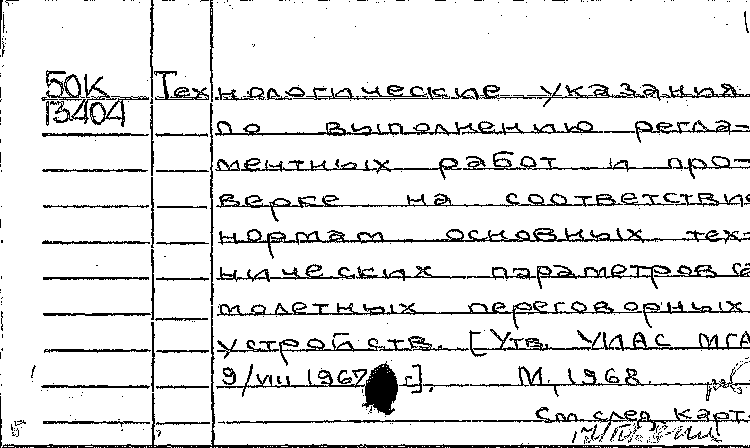 50К Технологические указания
13404 по выполнению регла-
ментных работ и про-
верке на соответствие
нормам основных тех-
нических параметров са
молетных переговорных
устройств. [Утв. УИАС МГА
9/VIII 1967 г]. М., 1968.
См. след. карт.